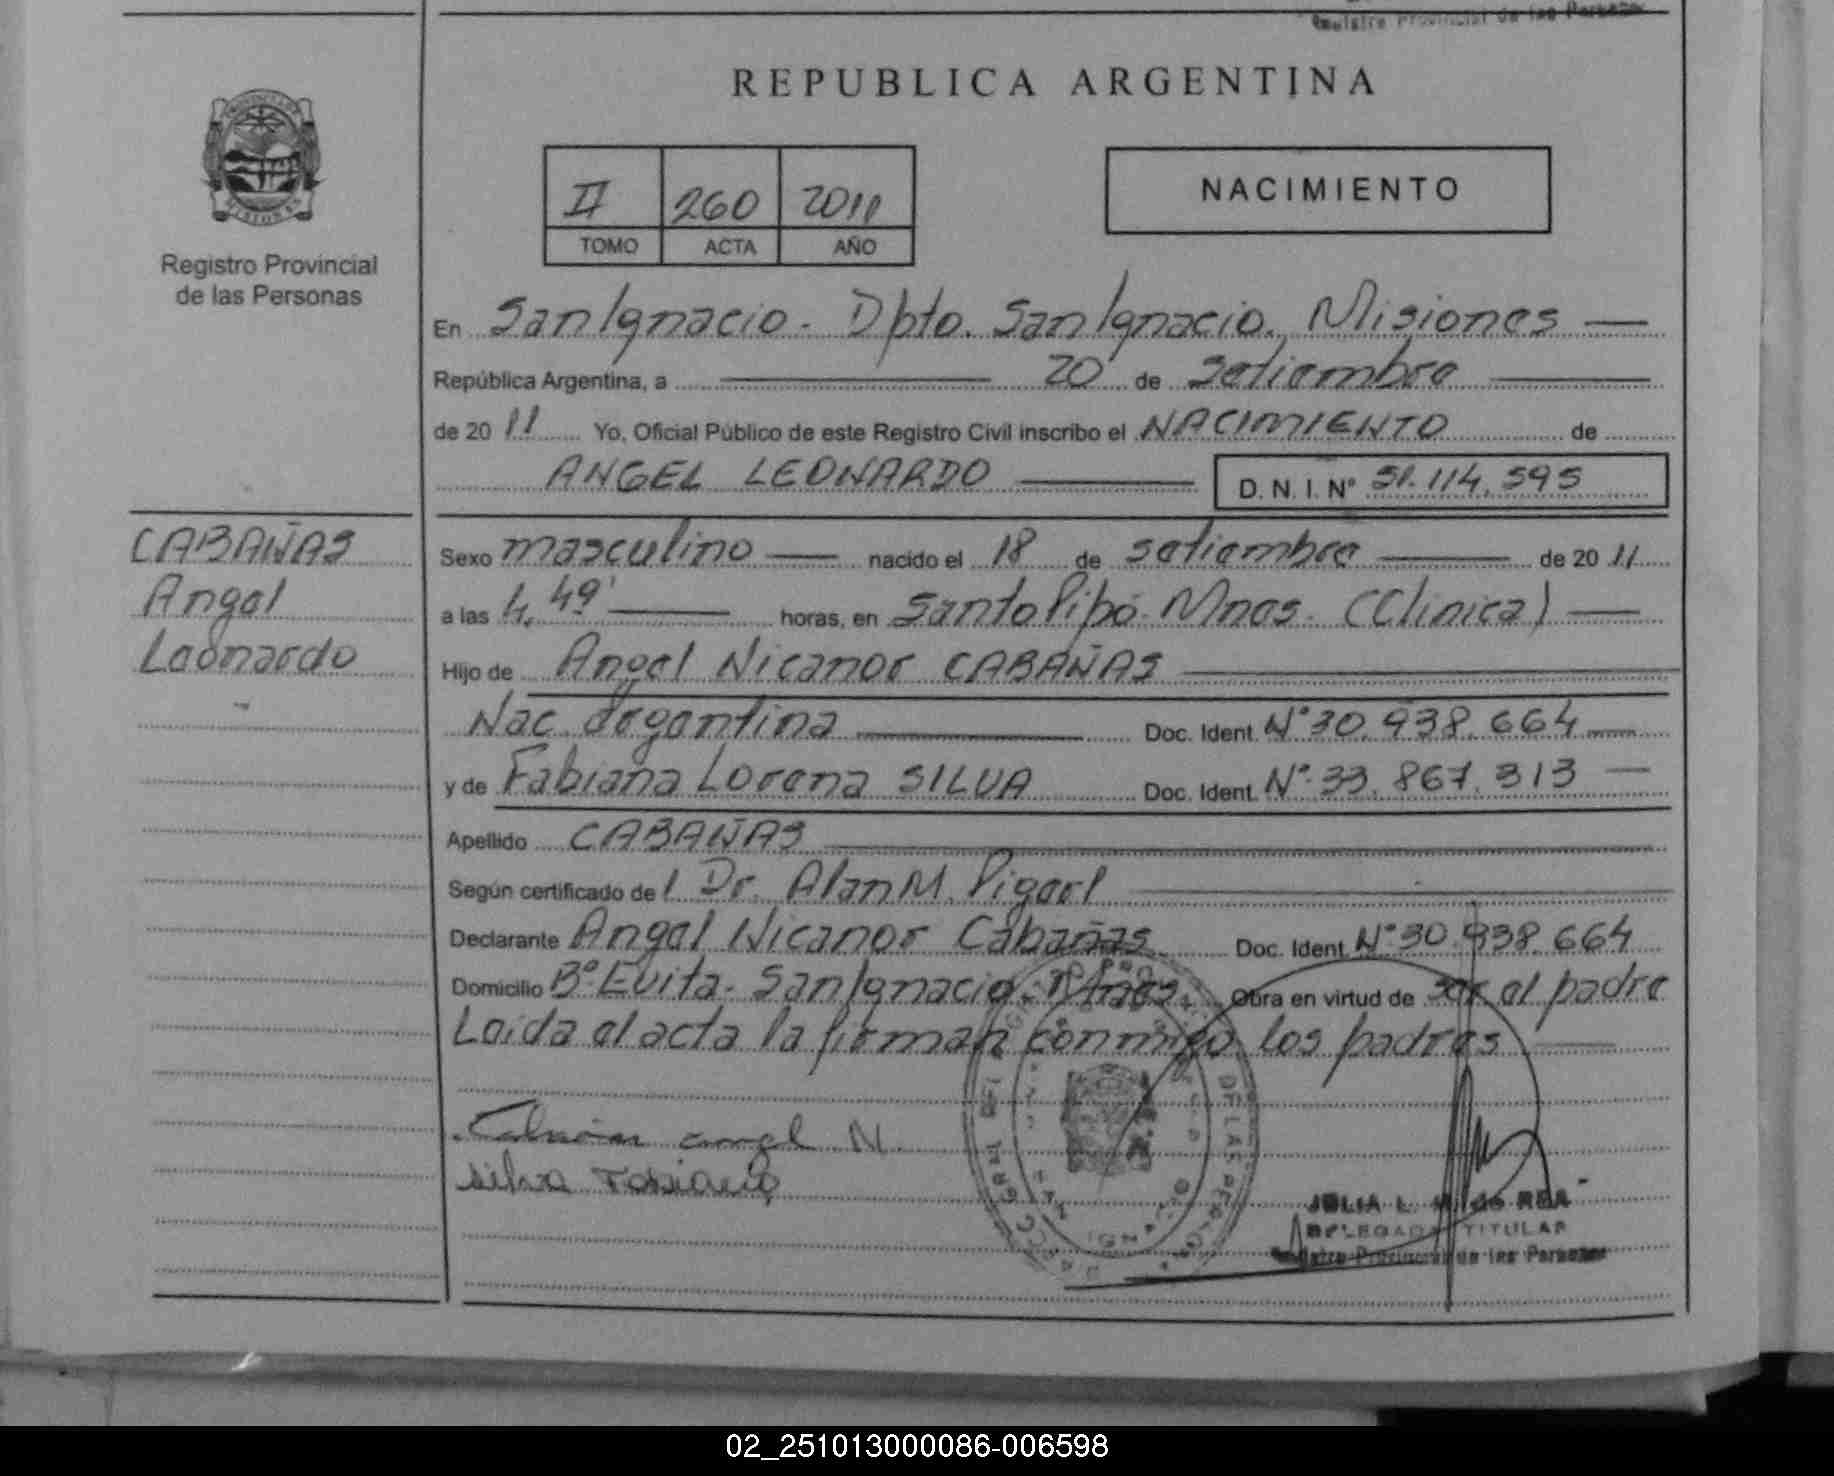 Registro Provincial de las Personas
REPUBLICA ARGENTINA
PROVINCIA
MISIONES
Registro Provincial
de las Personas
II 260 2011
TOMO ACTA AÑO
NACIMIENTO
En San Ignacio - Dpto. San Ignacio. Misiones
República Argentina, a 20 de Setiembre
de 20 11 Yo, Oficial Público de este Registro Civil inscribo el NACIMIENTO de
ANGEL LEONARDO D. N. I. N° 51.114.595
CABAÑAS
Angel
Leonardo
Sexo masculino nacido el 18 de setiembre de 20 11
a las 4,49' horas, en Santo Pipó - Mnes. (Clinica)
Hijo de Angel Nicanor CABAÑAS
Nac. Argentina Doc. Ident. N° 30.938.664
y de Fabiana Lorena SILVA Doc. Ident. N° 33.867.313
Apellido CABAÑAS
Según certificado del Dr. Alan M.
Declarante Angel Nicanor Cabañas Doc. Ident. N° 30.938.664
Domicilio B° Evita - San Ignacio, Mnes. Obra en virtud de ser el padre
Leida el acta la firman conmigo los padres
angel N.
Silva Fabiana
JULIA L. de REA
DELEGADA TITULAR
Registro Provincial de las Personas
02_251013000086-006598